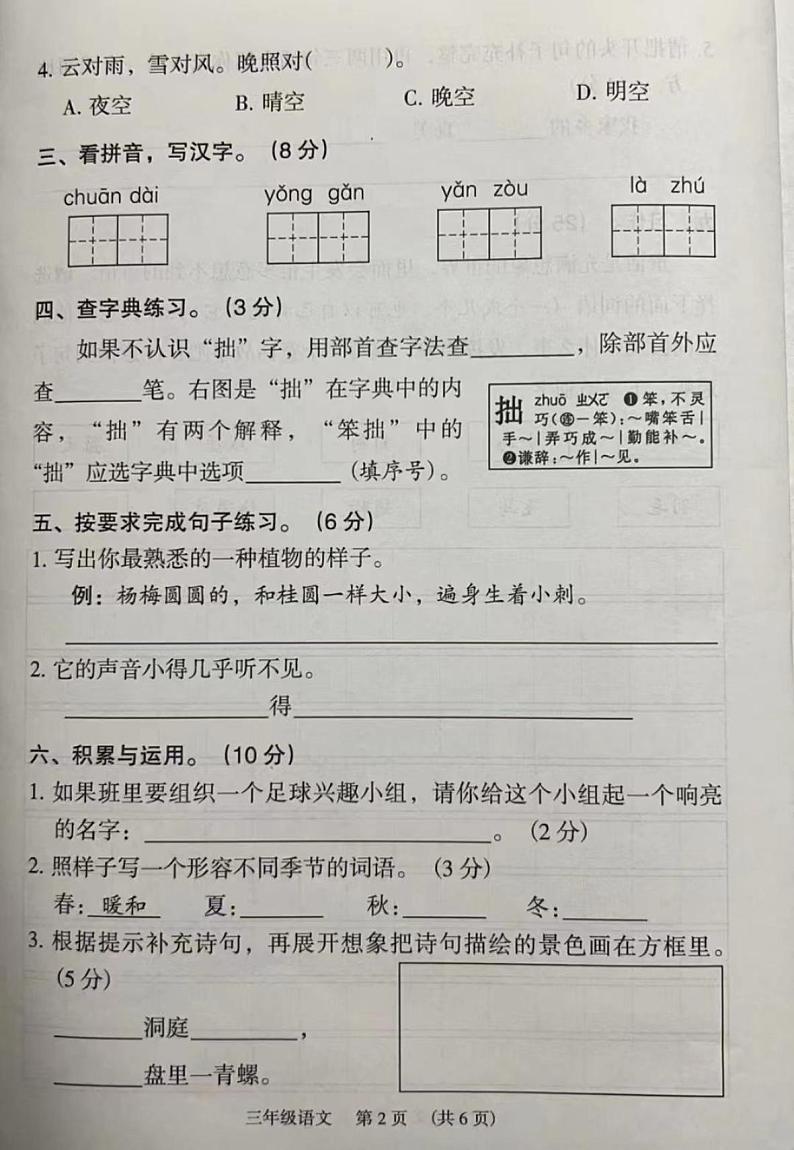 4. 云对雨，雪对风。晚照对(　　)。
A. 夜空 B. 晴空 C. 晚空 D. 明空
三、看拼音，写汉字。（8 分）
chuān dài yǒng gǎn yǎn zòu là zhú
四、查字典练习。（3 分）
如果不认识“拙”字，用部首查字法查________，除部首外应
查______笔。右图是“拙”在字典中的内
容，“拙”有两个解释，“笨拙”中的
“拙”应选字典中选项_______（填序号）。
拙 zhuō ㄓㄨㄛ ❶笨，不灵
巧(㊣一笨)：～嘴笨舌|
手～|弄巧成～|勤能补～。
❷谦辞：～作|～见。
五、按要求完成句子练习。（6 分）
1. 写出你最熟悉的一种植物的样子。
例：杨梅圆圆的，和桂圆一样大小，遍身生着小刺。
2. 它的声音小得几乎听不见。
______________得________________________
六、积累与运用。（10 分）
1. 如果班里要组织一个足球兴趣小组，请你给这个小组起一个响亮
的名字：________________________。（2 分）
2. 照样子写一个形容不同季节的词语。（3 分）
春：暖和 夏：______ 秋：______ 冬：______
3. 根据提示补充诗句，再展开想象把诗句描绘的景色画在方框里。
（5 分）
______洞庭_______，
______盘里一青螺。
三年级语文 第 2 页 （共 6 页）